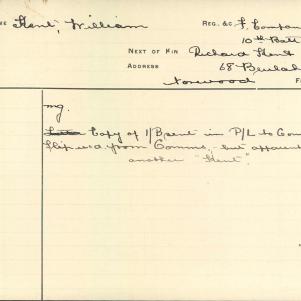 ME Kent, William REG. &C. F. Compan
10th Batt
NEXT OF KIN Richard Kent
ADDRESS 68 Beulah
Norwood F
mg.
Copy of 1/B sent in P/L to Com
Slip u/d from Comms, but apparent
another "Kent".